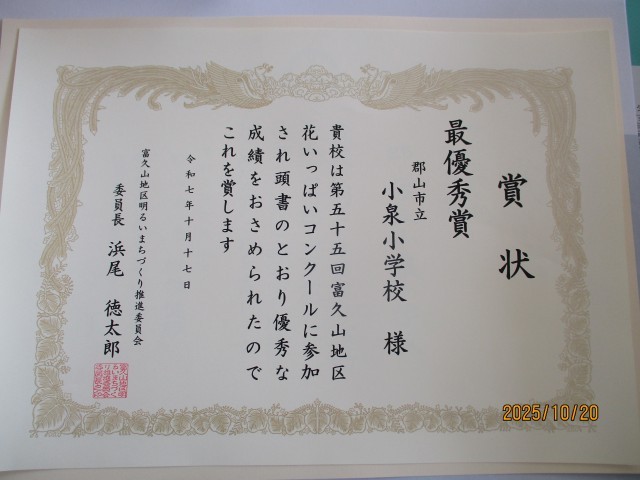 賞状
最優秀賞
郡山市立
小泉小学校 様
貴校は第五十五回富久山地区
花いっぱいコンクールに参加
され頭書のとおり優秀な
成績をおさめられたので
これを賞します
令和七年十月十七日
富久山地区明るいまちづくり推進委員会
委員長 浜尾 徳太郎
2025/10/20